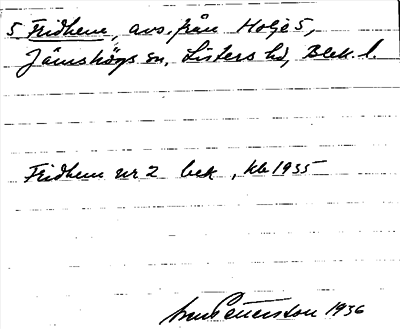 5 Fridhem, avs. från Holje 5,
Jämshögs sn, Listers hd, Blek. l.
Fridhem nr 2 bek, kb 1935
Petersson 1936